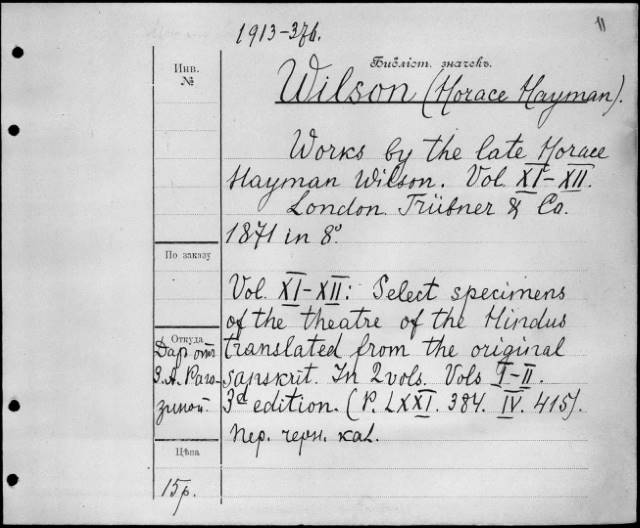 11
1913-376.
Библіот. значекъ.
Инв.
№
Wilson (Horace Hayman).
Works by the late Horace
Hayman Wilson. Vol. XI-XII.
London. Trübner & Co.
1871 in 8º
По заказу
Vol. XI-XII: Select specimens
of the theatre of the Hindus
Откуда
translated from the original
Даръ отъ
З.А. Раго-
зиной.
sanskrit. In 2 vols. Vols I-II.
3d edition. (P. LXXI. 384. IV. 415).
Пер. черн. кал.
Цѣна
15р.